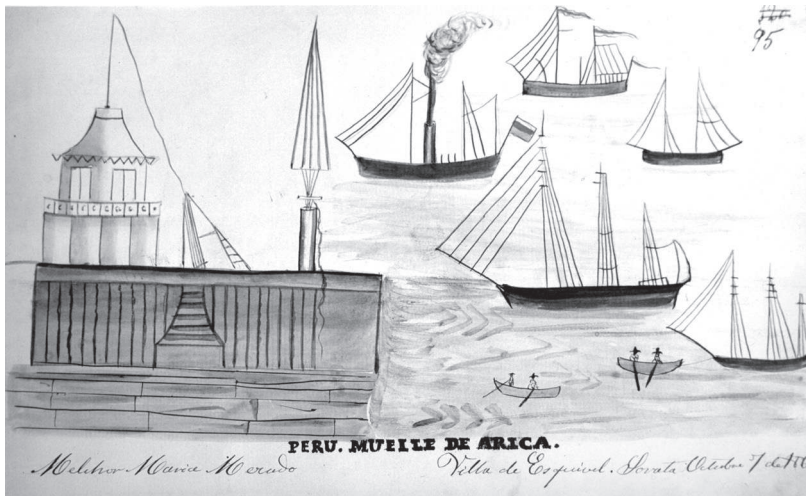 95
PERU. MUELLE DE ARICA.
Melchor María Mercado
Villa de Esquivel. Sorata Octubre 7 de